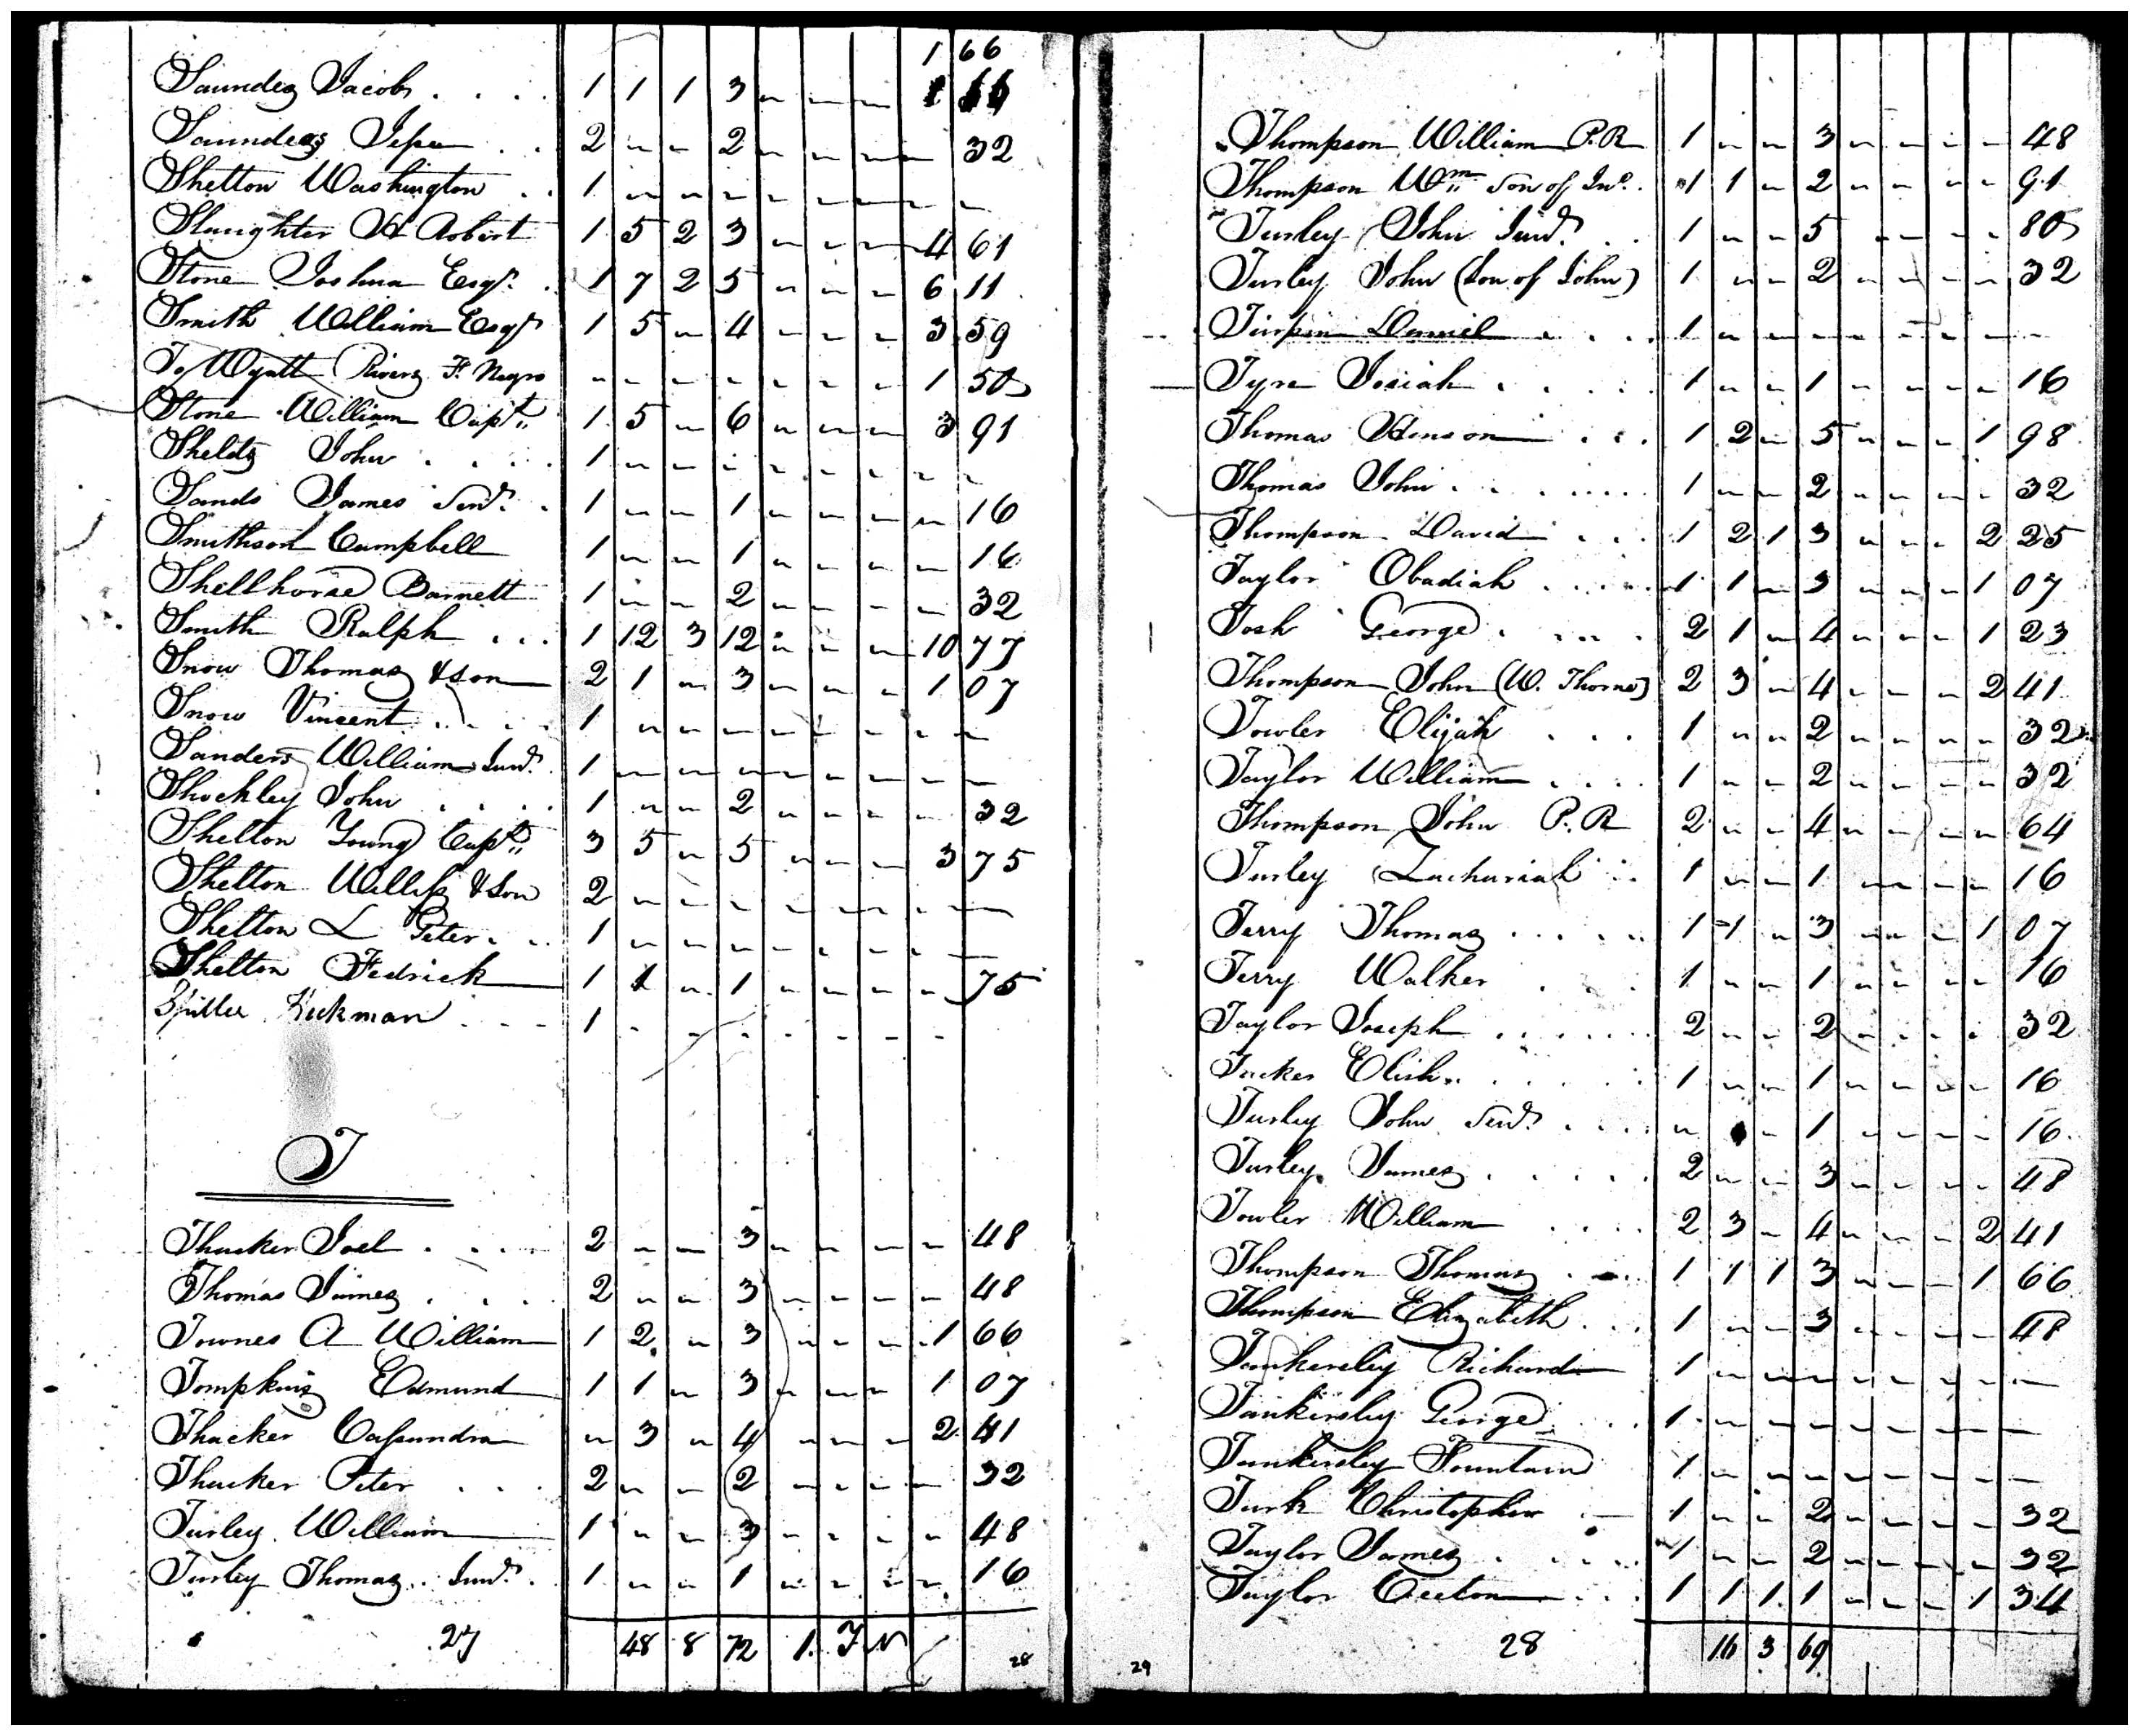 1 66
Saunders Jacob . . . . 1 1 1 3 " — — 1 66
Saunders Jesse . . 2 " " 2 " " " — 32
Shelton Washington . . 1 " " " " " " " —
Slaughter H Robert 1 5 2 3 " " — 4 61
Stone Joshua Esqr. . 1 7 2 5 " " " 6 11
Smith William Esqr 1 5 " 4 " " " 3 59
To Wyatt Rivers F. Negro " " " " " " " 1 50
Stone William Capt. 1 5 " 6 " " " 3 91
Shelds John . . . . 1 " " " " " " " "
Sands James Senr. . 1 " " 1 " " " " 16
Smithson Campbell 1 " " 1 " " " " 16
Shellhorse Barnett 1 " " 2 " " " " 32
Smith Ralph . . . 1 12 3 12 " " " 10 77
Snow Thomas & son 2 1 " 3 " " " 1 07
Snow Vincent . . . . 1 " " " " " " " —
Sanders William Junr. 1 " " " " " " " —
Shockley John . . . . 1 " " 2 " " " " 32
Shelton Young Capt. 3 5 " 5 " " " 3 75
Shelton Willis & Son 2 " " " " " " " —
Shelton L Peter . . . 1 " " " " " " " —
Shelton Fedrick 1 1 " 1 " " " " 75
Hickman . . . 1 - - - - - - -
T
Thacker Joel . . . . 2 " " 3 " " " " 48
Thomas James . . . . 2 " " 3 " " " " 48
Townes A William 1 2 " 3 " " " 1 66
Tompkins Edmund 1 1 " 3 " " " 1 07
Thacker Cassandra " 3 " 4 " " " 2 41
Thacker Peter . . . 2 " " 2 " " " " 32
Turley William 1 " " 3 " " " " 48
Turley Thomas Junr. . 1 " " 1 " " " " 16
27 48 8 72 1. F N
28
Thompson William P.R 1 " " 3 " " " " 48
Thompson Wm. Son of Jno. 1 1 " 2 " " " " 91
Turley John Junr. . . 1 " " 5 " " " " 80
Turley John (Son of John) 1 " " 2 " " " " 32
Turpin Daniel . . . . 1 " " " " " " " "
Tyre Josiah . . . . . 1 " " 1 " " " " 16
Thomas Henson . . . 1 2 " 5 " " " 1 98
Thomas John . . . . . . 1 " " 2 " " " " 32
Thompson David . . . 1 2 1 3 " " " 2 25
Taylor Obadiah . . . . 1 1 " 3 " " " 1 07
Tosh George . . . . . 2 1 " 4 " " " 1 23
Thompson John (W. Thorns) 2 3 " 4 " " " 2 41
Towler Elijah . . . 1 " " 2 " " " " 32
Taylor William . . . . 1 " " 2 " " " " 32
Thompson John P. R 2 " " 4 " " " " 64
Turley Zachariah . . 1 " " 1 " " " " 16
Terry Thomas . . . . . 1 1 " 3 " " " 1 07
Terry Walker . . . 1 " " 1 " " " " 16
Taylor Joseph . . . . . . 2 " " 2 " " " " 32
Tucker Elish. . . . . . 1 " " 1 " " " " 16
Turley John Senr. . . . . " " 1 " " " " 16
Turley James . . . . . 2 " " 3 " " " " 48
Towler William . . . . 2 3 " 4 " " " 2 41
Thompson Thomas . . . 1 1 1 3 " " " 1 66
Thompson Elizabeth . . . 1 " " 3 " " " " 48
Tankersley Richard 1 " " " " " " " —
Tankersley George . . . 1 " " " " " " " —
Tankersley Fountain 1 " " " " " " " —
Turk Christopher . 1 " " 2 " " " " 32
Taylor James . . . . . 1 " " 2 " " " " 32
Taylor Creeton . . . 1 1 1 1 " " " 1 34
28 16 3 69
29